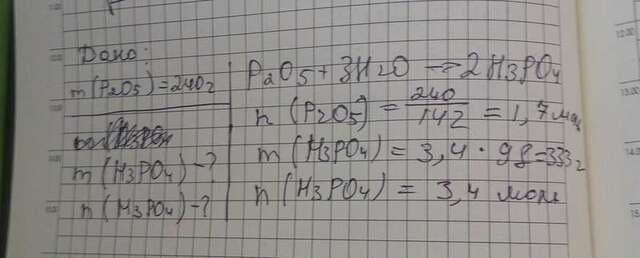 Дано:
m(P₂O₅)=240г
m(H₃PO₄)-?
n(H₃PO₄)-?
P₂O₅+3H₂O → 2H₃PO₄
n(P₂O₅) = 240/142 = 1,7 мол
m(H₃PO₄) = 3,4 · 98 = 333г
n(H₃PO₄) = 3,4 моль